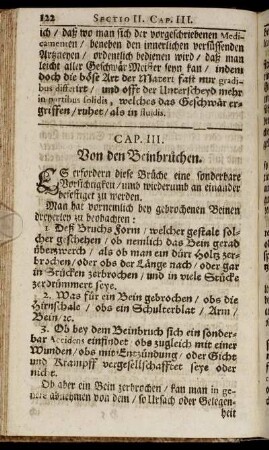 122 SECTIO II. CAP. III.
ich / daß wo man sich der vorgeschriebenen Medi-
camenten / beneben den innerlichen versüssenden
Artzneyen / ordentlich bedienen wird / daß man
leicht aller Geschwär Meister seyn kan / indem
doch die böse Art der Materi fast nur gradi-
bus differirt / und offt der Unterscheyd mehr
in partibus solidis, welches das Geschwär er-
griffen / ruhet / als in fluidis.
CAP. III.
Von den Beinbrüchen.
ES erfordern diese Brüche eine sonderbare
Vorsichtigkeit / und wiederumb an einander
befestiget zu werden.
Man hat vornemlich bey gebrochenen Beinen
dreyerley zu beobachten:
1 Deß Bruchs Form / welcher gestalt sol-
cher geschehen / ob nemlich das Bein gerad
überzwerch / als ob man ein dürr Holtz zer-
brochen / oder obs der Länge nach / oder gar
in Stücken zerbrochen / und in viele Stücke
zerdrümmert seye.
2. Was für ein Bein gebrochen / obs die
Hirnschale / obs ein Schulterblat / Arm /
Bein / ꝛc.
3. Ob bey dem Beinbruch sich ein sonder-
bar Accidens einfindet / obs zugleich mit einer
Wunden / obs mit Entzündung / oder Gicht
und Krampff vergesellschafftet seye oder
nicht.
Ob aber ein Bein zerbrochen / kan man in ge-
nere abnehmen von dem / so Ursach oder Gelegen-
heit